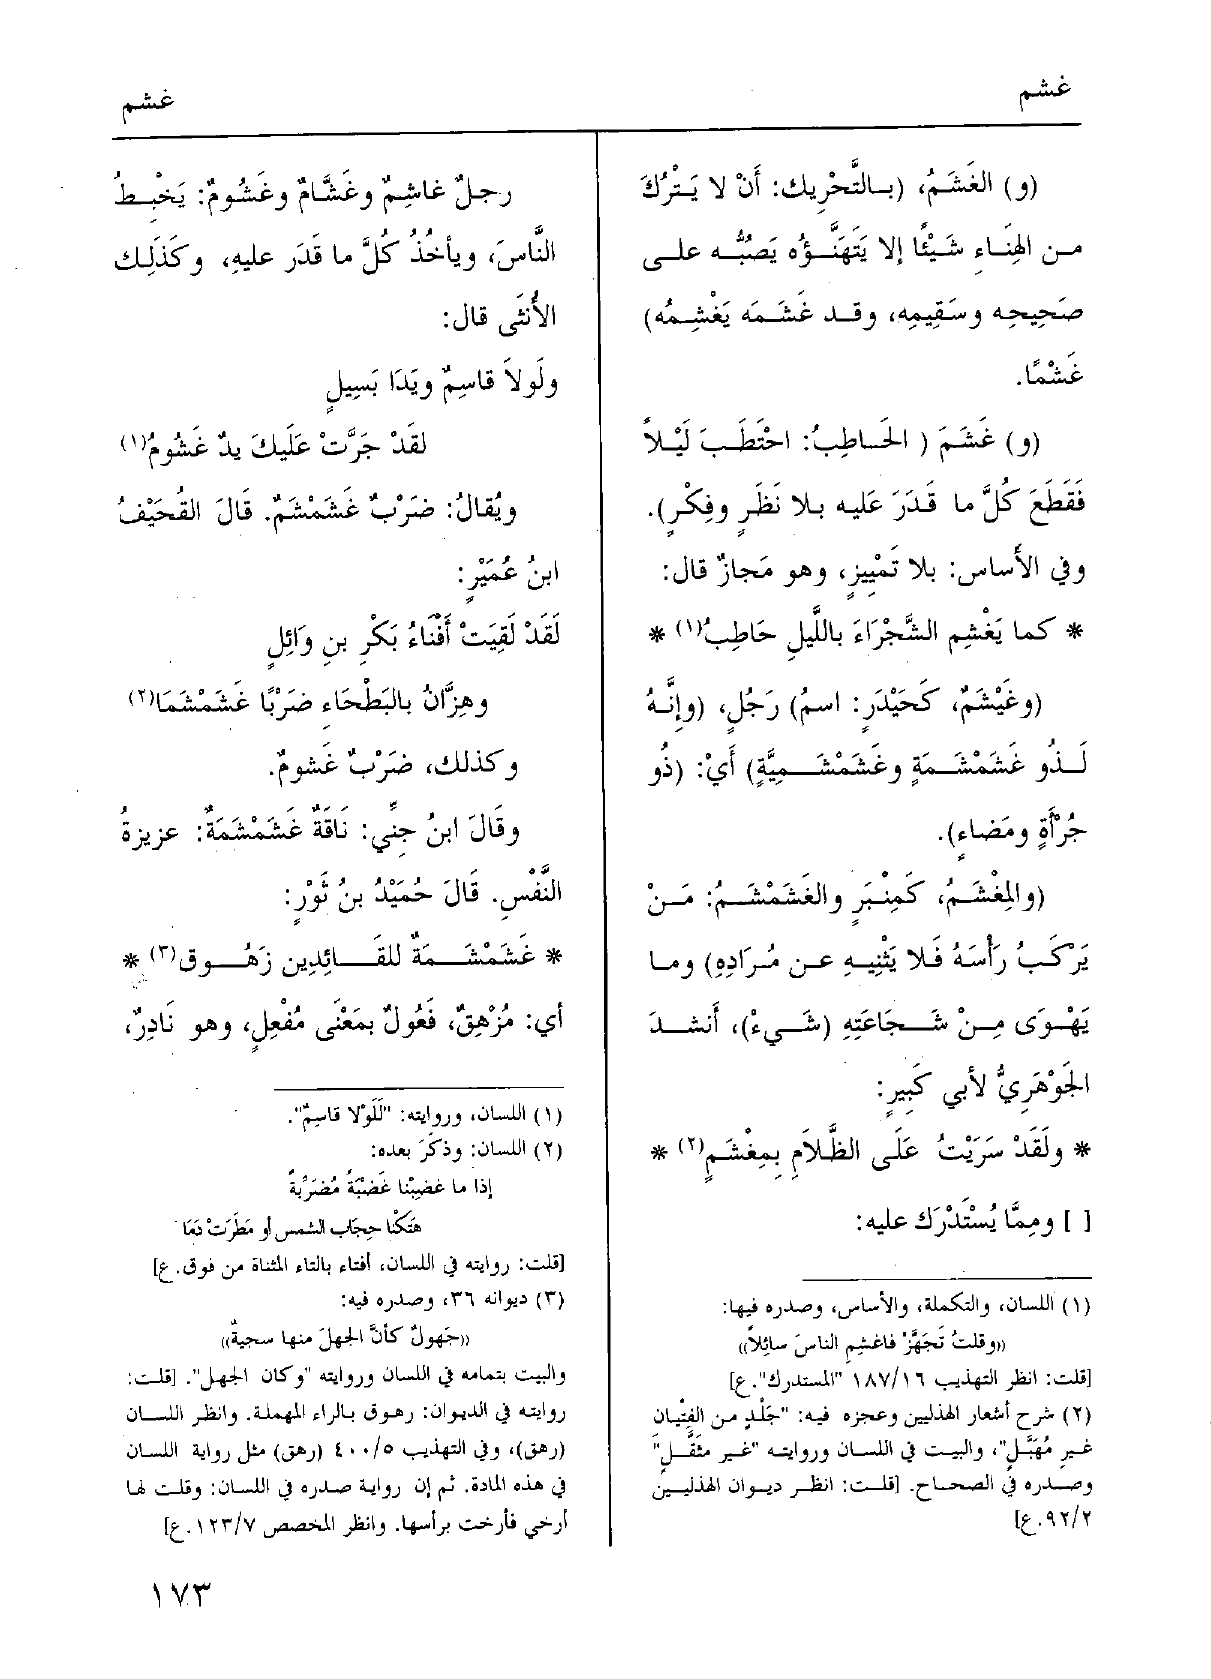 غشم
غشم
(و) الغَشَمُ، (بالتَّحْرِيك: أَنْ لا يَتْرُكَ
من الهِنَاءِ شَيْئًا إلا يَتَهَنَّؤُه يَصُبُّه على
صَحِيحِه وسَقِيمِه، وقد غَشَمَه يَغْشِمُه)
غَشْمًا.
(و) غَشَمَ ( الحَاطِبُ: احْتَطَبَ لَيْلاً
فَقَطَعَ كُلَّ ما قَدَرَ عَليه بلا نَظَرٍ وفِكْرٍ).
وفي الأَساس: بلا تَمْيِيزٍ، وهو مَجازٌ قال:
* كما يَغْشِم الشَّجْرَاءَ باللَّيلِ حَاطِبُ(١) *
(وغَيْشَمٌ، كَحَيْدَرٍ: اسمُ) رَجُلٍ، (وإنَّهُ
لَذُو غَشَمْشَمَةٍ وغَشَمْشَمِيَّةٍ) أَيْ: (ذُو
جُرْأَةٍ ومَضاءٍ).
(والمِغْشَمُ، كَمِنْبَرٍ والغَشَمْشَمُ: مَنْ
يَرْكَبُ رَأْسَهُ فَلا يَثْنِيهِ عن مُرَادِهِ) وما
يَهْوَى مِنْ شَجاعَتِهِ (شَيءْ)، أَنشد
الجَوْهَرِيُّ لأبي كَبِيرٍ:
* ولَقَدْ سَرَيْتُ عَلَى الظَّلاَمِ بِمِغْشَمٍ(٢) *
[ ] ومِمَّا يُسْتَدْرَك عليه:
(١) اللسان، والتكملة، والأساس، وصدره فيها:
«وقلتُ تَجهَّزْ فاغشِمِ الناسَ سائلاً»
[قلت: انظر التهذيب ١٨٧/١٦ "المستدرك". ع]
(٢) شرح أشعار الهذليين وعجزه فيه: "جَلْدٍ من الفِتْيان
غيرِ مُهَبَّلٍ"، والبيت في اللسان وروايته "غير مثقَّلِ"
وصدره في الصحاح. [قلت: انظر ديوان الهذليين
٩٢/٢. ع]
رجلٌ غاشِمٌ وغَشَّامٌ وغَشُومٌ: يَخْبِطُ
النَّاسَ، ويأخُذُ كُلَّ ما قَدَر عليهِ، وكَذَلِك
الأُنثَى قال:
ولَولاَ قاسِمٌ ويَدَا بَسِيلٍ
لقَدْ جَرَّتْ عَلَيكَ يدٌ غَشُومُ(١)
ويُقالُ: ضَرْبٌ غَشَمْشَمٌ. قَالَ القُحَيْفُ
ابنُ عُمَيْرٍ:
لَقَدْ لَقِيَتْ أَفْنَاءُ بَكْرِ بنِ وَائِلٍ
وهِزَّانُ بالبَطْحَاءِ ضَرْبًا غَشَمْشَمَا(٢)
وكذلك، ضَرْبٌ غَشومٌ.
وقَالَ ابنُ جِنِّي: نَاقَةٌ غَشَمْشَمَةٌ: عزيزةُ
النَّفْسِ. قَالَ حُمَيْدُ بنُ ثَوْرٍ:
* غَشَمْشَمَةٌ للقَائِدِين زَهُوق(٣) *
أي: مُزْهِقٌ، فَعُولٌ بمَعْنَى مُفْعِلٍ، وهو نَادِرٌ،
(١) اللسان، وروايته: "لَلَوْلا قاسِمٌ".
(٢) اللسان: وذكَرَ بعده:
إذا ما غضِبْنا غَضْبَةً مُضَرِيَّةً
هتَكْنا حِجَابَ الشمسِ أو مَطَرَتْ دَمَا
[قلت: روايته في اللسان، أفتاء بالتاء المثناة من فوق. ع]
(٣) ديوانه ٣٦، وصدره فيه:
«جَهولٌ كأنَّ الجهلَ منها سجيةٌ»
والبيت بتمامه في اللسان وروايته "وكان الجهل". [قلت:
روايته في الديوان: رهوق بالراء المهملة. وانظر اللسان
(رهق)، وفي التهذيب ٤٠٠/٥ (رهق) مثل رواية اللسان
في هذه المادة. ثم إن رواية صدره في اللسان: وقلت لها
أرخي فأرخت برأسها. وانظر المخصص ١٢٣/٧. ع]
١٧٣